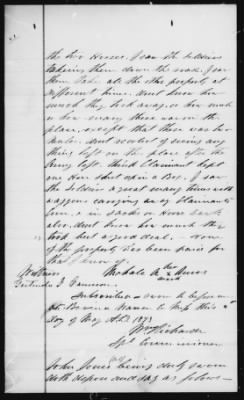 the two Horses. I saw the Soldiers
taking them down the road. I saw
them take all the other property at
different times. dont know how
much they took away, or how much
or how many there was on the
place, except that there was two
mules. dont recollect of seeing any
thing left on the place after the
army left. think Claimant kept
one Horse shut up in a Box. I saw
the Soldiers a great many times with
waggons carrying away Claimants
Corn, in sacks on Horse back
also, dont know how much they
took but a good deal. None
of the property has been paid for
that I know of.
Witness
her
mark
Subscribed & sworn to before me
at
day of May A.D. 1873
Wm Richards
Spl Commissioner
John Jones being duly sworn
doth depose and say as follows